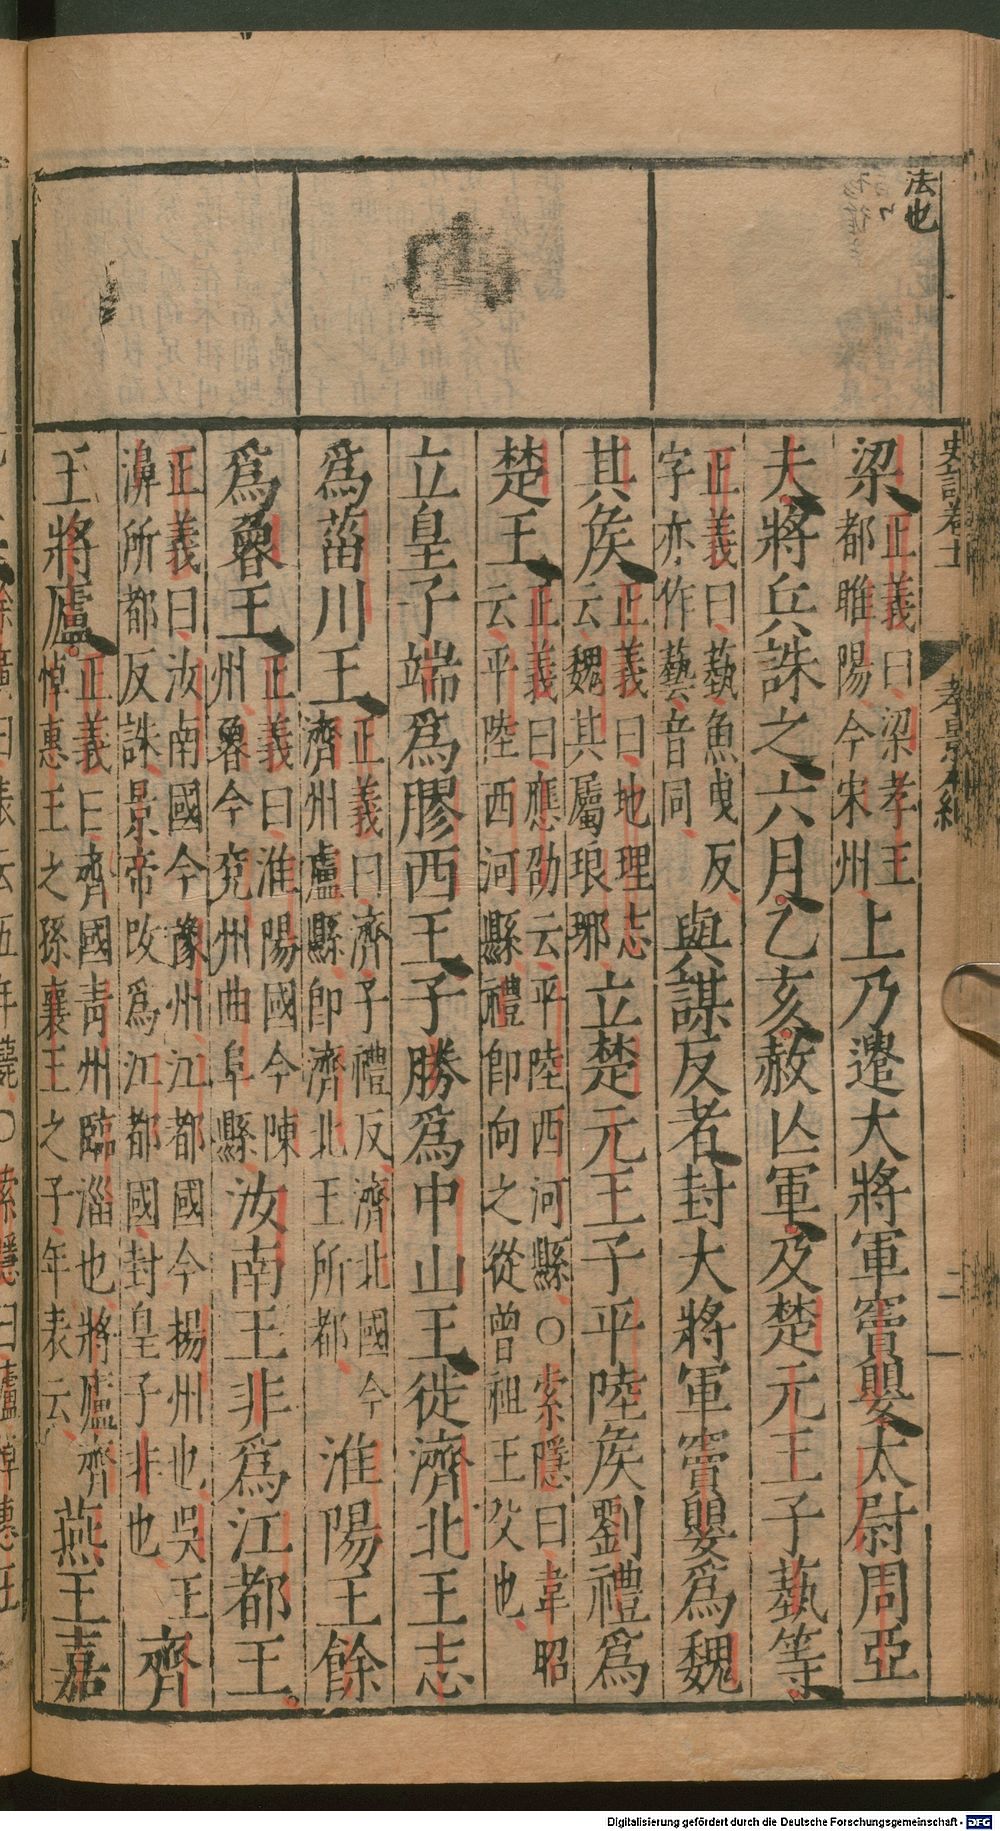 法也
史記卷十一 孝景本紀 二
梁正義曰梁孝王都睢陽今宋州上乃遣大將軍竇嬰太尉周亞
夫將兵誅之六月乙亥赦亡軍及楚元王子蓺等
正義曰蓺魚曳反字亦作藝音同與謀反者封大將軍竇嬰爲魏
其矦正義曰地理志云魏其屬琅邪立楚元王子平陸矦劉禮爲
楚王正義曰應劭云平陸西河縣〇索隱曰韋昭云平陸西河縣禮卽向之從曾祖王父也
立皇子端爲膠西王子勝爲中山王徙濟北王志
爲菑川王正義曰濟子禮反濟北國今濟州盧縣卽濟北王所都淮陽王餘
爲魯王正義曰淮陽國今陳州魯今兖州曲阜縣汝南王非爲江都王
正義曰汝南國今豫州江都國今揚州也吳王濞所都反誅景帝改爲江都國封皇子非也齊
王將廬正義曰齊國青州臨淄也將廬齊悼惠王之孫襄王之子年表云燕王嘉
Digitalisierung gefördert durch die Deutsche Forschungsgemeinschaft - DFG